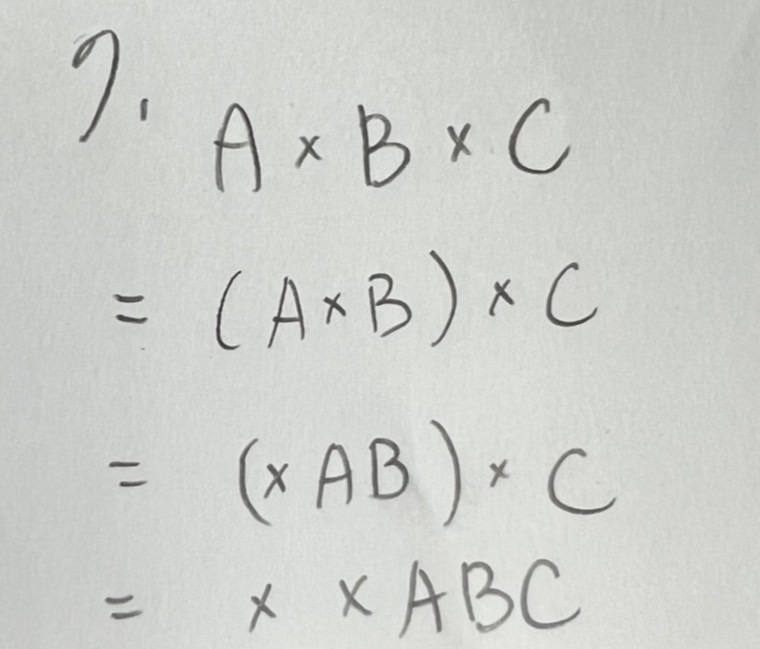 7. A × B × C
= (A × B) × C
= (× A B) × C
= × × A B C